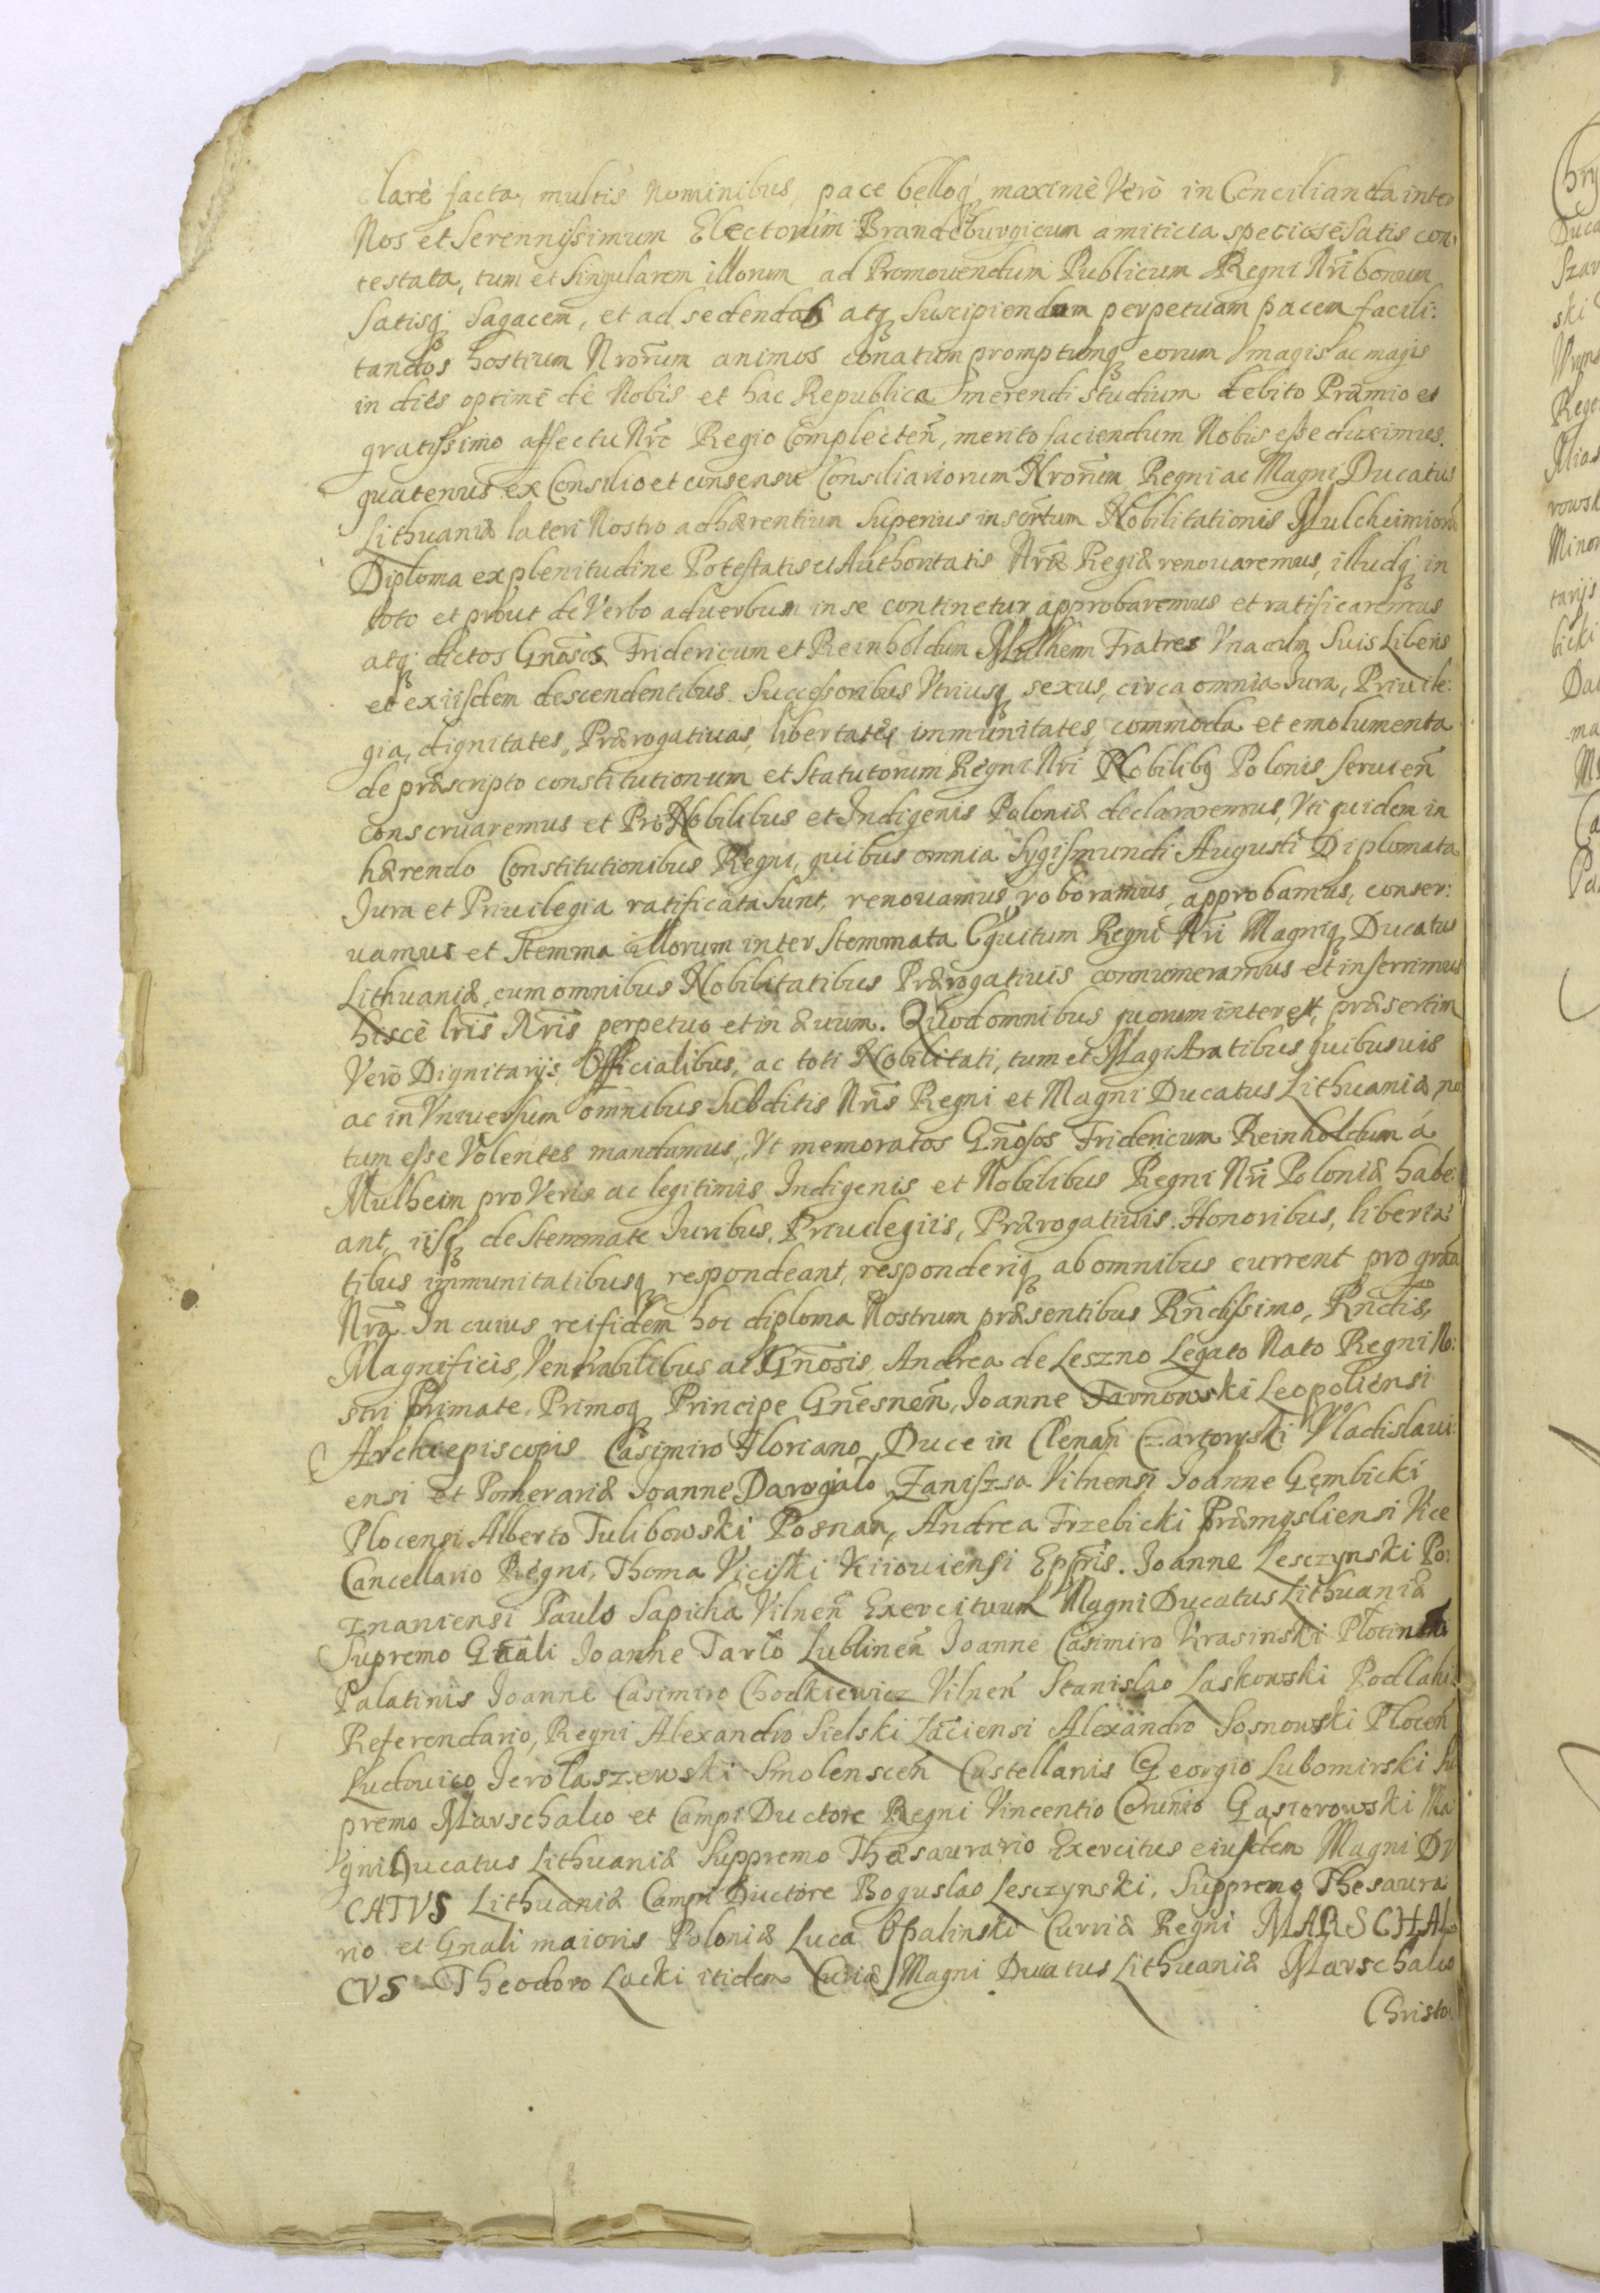 clarè facta, multis Nominibus, pace belloq; maximè Verò in Concilianda inter
Nos et Serennissimum Electorum Brandeburgicum amiticia speciosè Satis con:
testata, tum et Singularem illorum ad Promouendum Publicum Regni Nri bonum
Satisq; Sagacem, et ad sedendas atq; Suscipiendam perpetuam pacem facili:
tandos hostium Nrorum animos conatum promptumq; eorum magis ac magis
in dies optimè de Nobis et hac Republica merendi studium debito Præmio et
gratissimo affectu Nro Regio Complecten, merito faciendum Nobis esse duximus.
quatenus ex Consilio et consensu Consiliariorum Nrorum Regni ac Magni Ducatus
Lithuaniæ lateri Nostro adhærentium Superius insertum Nobilitationis Mulcheimiorum
Diploma ex plenitudine Potestatis et Authoritatis Nræ Regiæ renouaremus, illudq; in
toto et prout de Verbo aduerbum in se continetur approbaremus et ratificaremus
atq; dictos Gnosos Fridericum et Reinholdum Mulheim Fratres Vna cum Suis Liberis
et ex iisdem descendentibus Successoribus Vtriusq; sexus, circa omnia Jura, Priuile:
gia, dignitates, Prærogatiuas, libertates, immunitates, commoda et emolumenta
de præscripto constitutionum et Statutorum Regni Nri Nobilibq; Polonis seruien
conseruaremus et Pro Nobilibus et Indigenis Poloniæ declararemus, Vti quidem in
hærendo Constitutionibus Regni, quibus omnia Sygismundi Augusti Diplomata
Jura et Priuilegia ratificata sunt, renouamus, roboramus, approbamus, conser:
uamus et Stemma illorum inter Stemmata Equitum Regni Nri Magniq; Ducatus
Lithuaniæ, cum omnibus Nobilitatibus Prærogatiuis connumeramus et inserimus
hiscè lris Nris perpetuo et in æuum. Quod omnibus quorum interest, præsertim
Verò Dignitarijs, Officialibus, ac toti Nobilitati, tum et Magistratibus quibusuis
ac in Vniuersum omnibus Subditis Nris Regni et Magni Ducatus Lithuaniæ no
tum esse Volentes mandamus, Vt memoratos Gnosos Fridericum Reinholdum á
Mulheim pro Veris ac legitimis Indigenis et Nobilibus Regni Nri Poloniæ habe:
ant, iisq; de Stemmate Juribus, Priuilegiis, Prærogatiuis. Honoribus, liberta:
tibus immunitatibusq; respondeant, responderiq; ab omnibus current pro gra
Nra. In cuius rei fidem hoc diploma Nostrum præsentibus Rndissimo, Rndis,
Magnificis, Venerabilibus ac Gnosis, Andrea de Leszno Legato Nato Regni No:
stri Primate, Primoq; Principe Gnesnen, Joanne Tarnowski Leopoliensi
Archiepiscopis Casimiro Floriano Duce in Clenan Czartowski Vladislaui:
ensi et Pomeraniæ Joanne Dawgialo Zanissza Vilnensi Joanne Gembicki
Plocensi Alberto Tulibowski Posnan, Andrea Trzebicki Præmysliensi Vice
Cancellario Regni, Thoma Vieiski Kiiouiensi Eppris. Joanne Lesczynski Po:
znaniensi Paulo Sapieha Vilnen Exercituum Magni Ducatus Lithuaniæ
Supremo Gnali Joanne Tarło Lublinen Joanne Casimiro Krasinski Plocinen
Palatinis Joanne Casimiro Chodkiewicz Vilnen Stanislao Laskowski Podlahi
Referendario, Regni Alexandro Sielski Lanciensi Alexandro Sosnowski Plocen
Ludouico Jerolaszewski Smolenscen Castellanis Georgio Lubomirski Su
premo Marschalco et Campi Ductore Regni Vincentio Coruino Gasiorowski Ma
gni Ducatus Lithuaniæ Suppremo Thesaurario Exercitus eiusdem Magni DV
CATVS Lithuaniæ Campi Ductore Boguslao Lesczynski, Suppremo Thesaura
rio et Gnali maioris Poloniæ Luca Opalinski Curriæ Regni MARSCHAL
CVS Theodoro Lacki itidem Curiæ Magni Ducatus Lithuaniæ Marschalco
Christo: